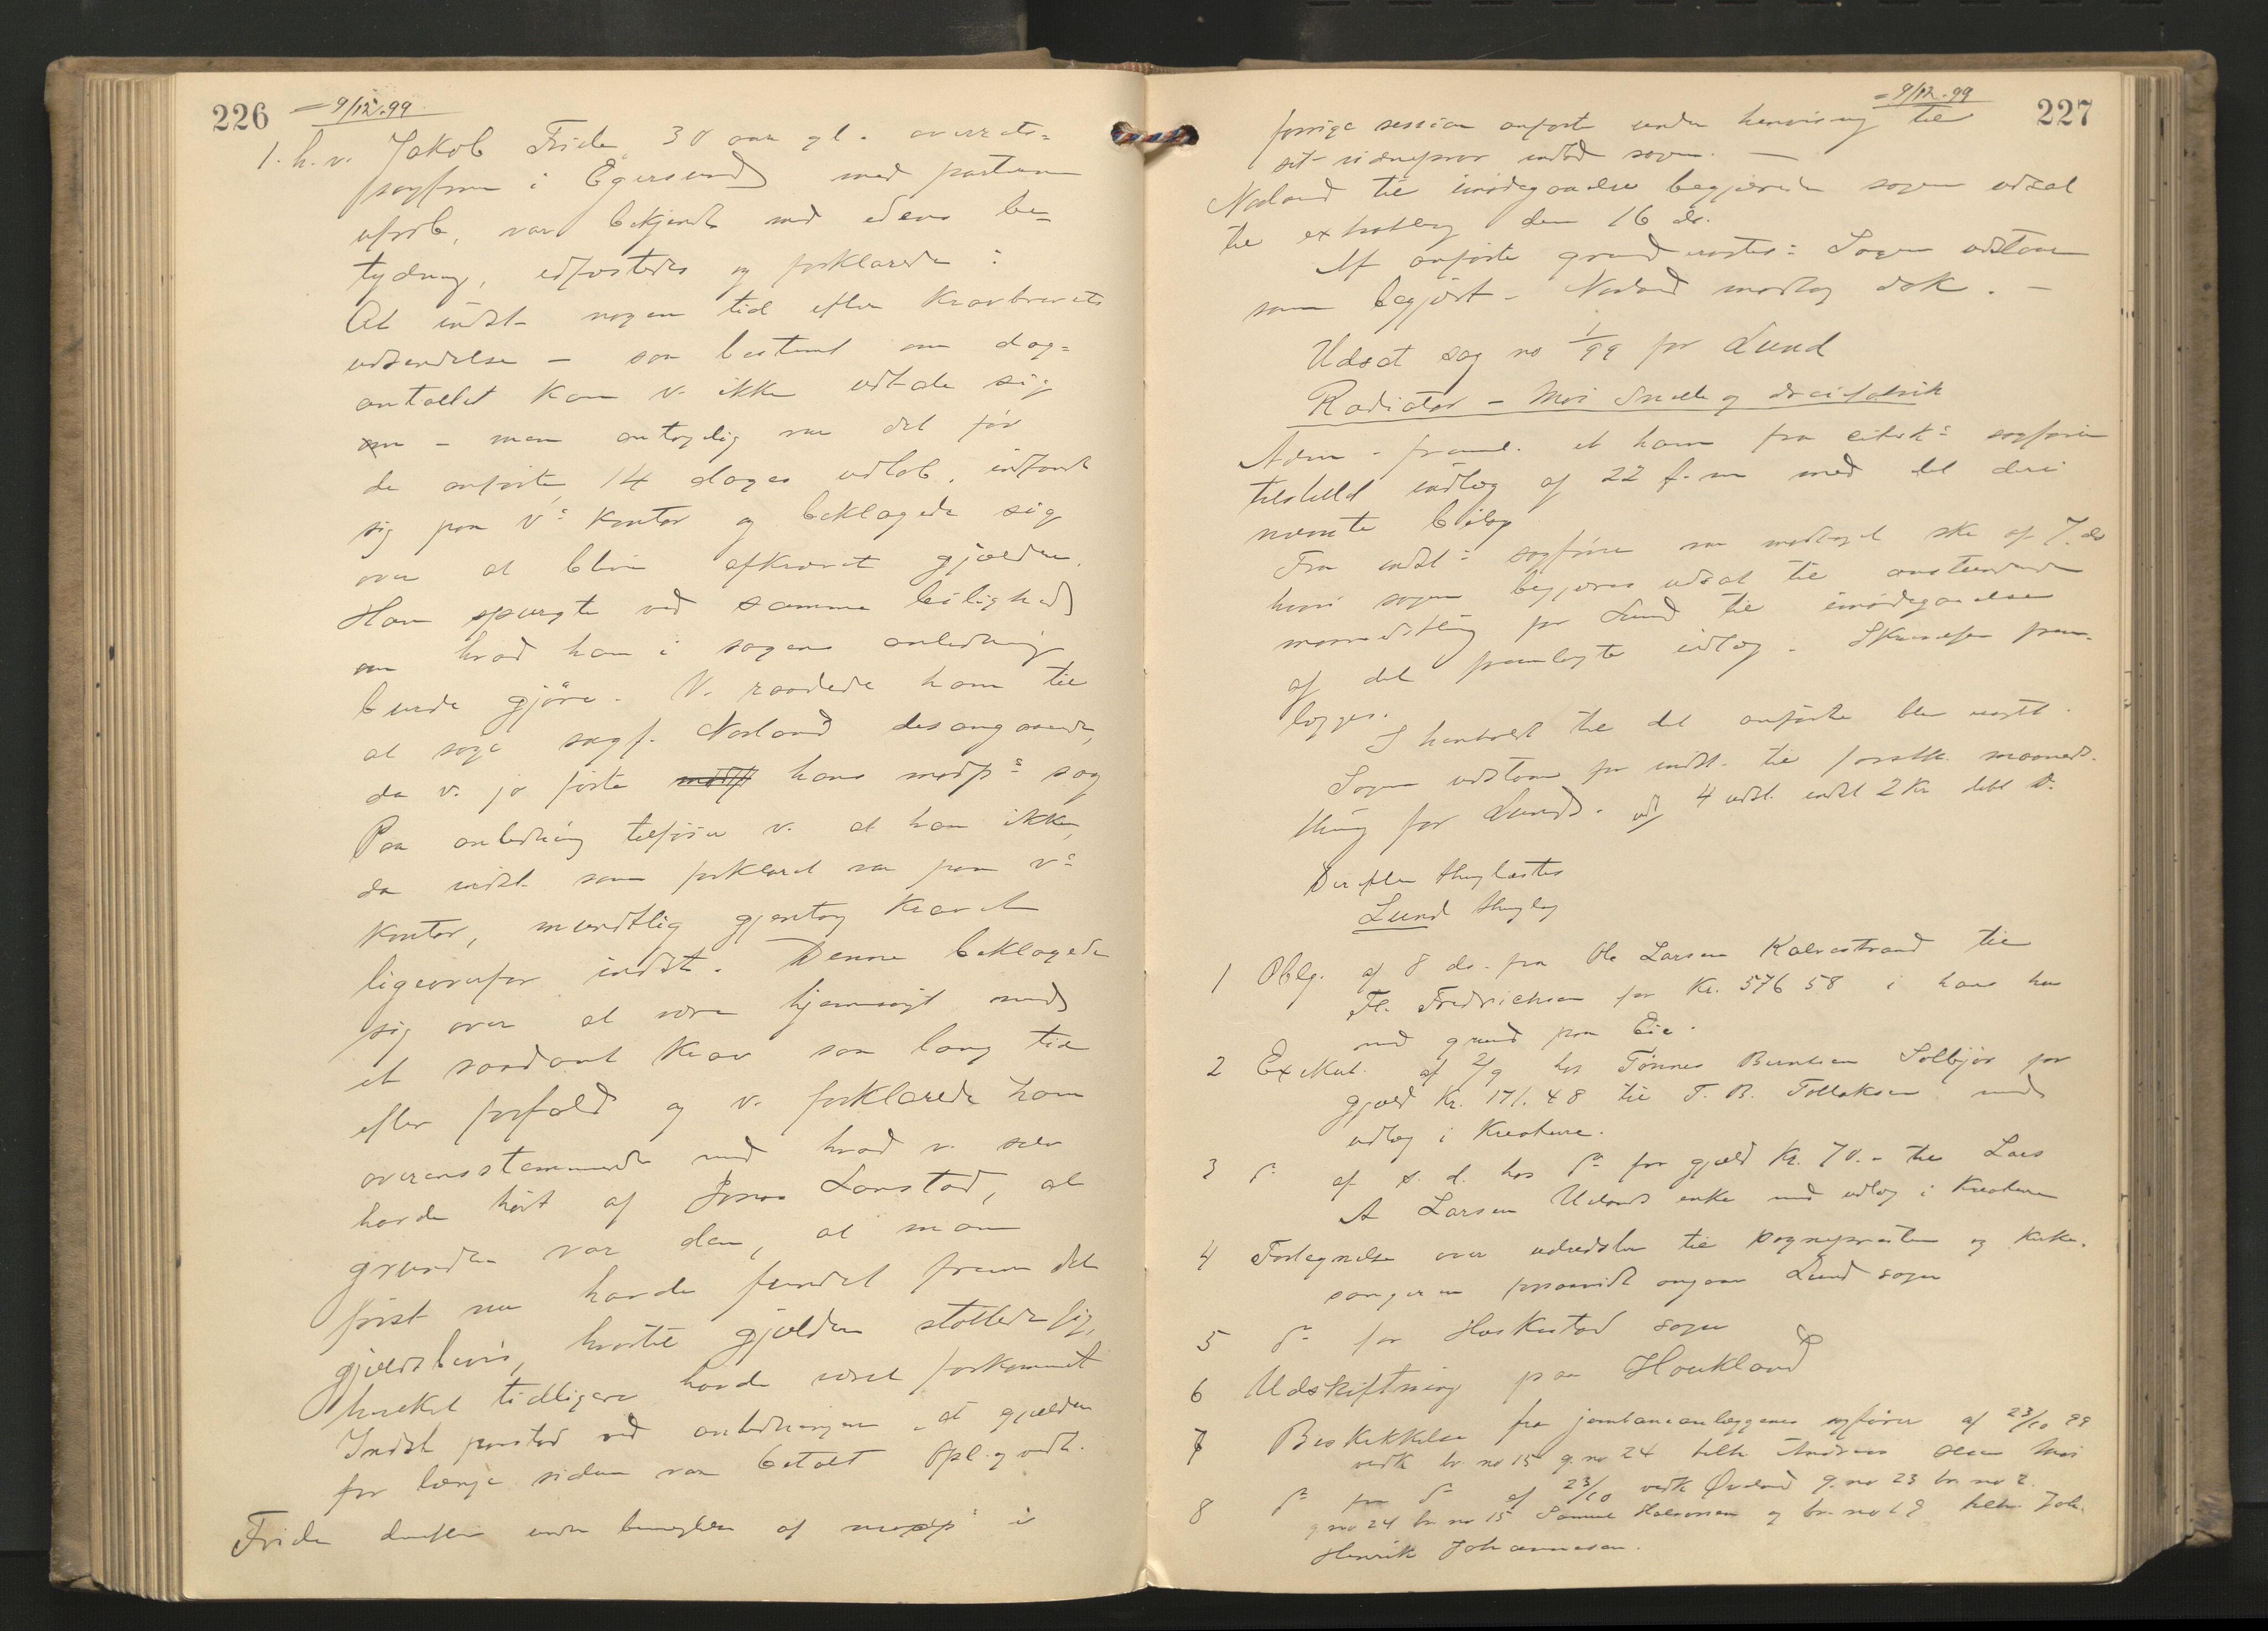 226 9/12.99
1. h.v. Jakob Frida 30 aar gl. overrets=
sagfører i Egersund med parterne
ubesl., var bekjendt med edens be=
tydning, edfæstedes og forklarede:
At indst. nogen tid efter kravbrevets
udsendelse – saa bestemt om dag=
antallet kan v. ikke udtale sig
om – men antagelig var det før
de anførte 14 dages udløb, indfandt
sig paa v's kontor og beklagede sig
over at blive afkrævet gjælden.
Han spurgte ved samme leilighed
om hvad han i sagens anledning
burde gjøre. V. raadede ham til
at søge sagf. Norland desangaaende,
da v. jo førte modp hans modp's sag
Paa anledning tilføier v. at han ikke,
da indst. som forklaret var paa v's
kontor, mundtlig gjentog kravet
ligeoverfor indst. Denne beklagede
sig over at være hjemsøgt med
et saadant krav saa lang tid
efter forfald og v. forklarede ham
overensstemmende med hvad v. selv
havde hørt af Lonstad, at
grunden var den, at man
først nu havde fundet frem det
gjældsbevis, hvortil gjælden støttede sig,
hvilket tidligere havde været forkommet
Indst. paastod ved anledningen at gjælden
for længe siden var betalt Opl. og vedt.
Frida derefter under benegtelse af modp's i
9/12.99 227
forrige session anførte under henvisning til
sit vidneprov indlod sagen. –
Norland til imødegaaelse begjærede sagen udsat
til extrathing den 16 ds.
Af anførte grund eragtes: Sagen udstaar
som begjært – Norland modtog dok. –
Udsat sag no 1/99 for Lund
Radiator – Moi Snelle og dreifabrik
Adm. freml. et ham fra citsk's sagfører
tilstillet indlæg af 22 f.m. med det deri
nævnte bilag
Fra indst's sagfører var modtaget skr. af 7. ds
hvori sagen begjæres udsat til anstundende
maanedsting for Lund til imødegaaelse
af det fremlagte indlæg. Skrivelsen frem-
lægges.
I henhold til det anførte blev eragtet
Sagen udstaar for indst. til førstk. maaneds-
thing for Lund. 4 udst. indst 2 Kr
Derefter thinglæstes
Lund thinglag
1 Oblg. af 8 ds. fra Ole Larsen Kalvestrand til
Fr. Fredrichsen for Kr. 576 58 i hans hus
med grund paa Eie.
2 Exekut. af 2/9 hos Tønnes Berntsen Solbjør for
gjæld Kr. 171.48 til T. B. Tollaksen med
udlæg i Kreature.
3 do af s. d. hos do for gjæld Kr. 70.– til Lars
A Larsen Uelands enke med udlæg i Kreature
4 Fortegnelse over udredsler til sognepresten og kirke-
sangeren forsaavidt angaar Lund sogn
5 do for Heskestad sogn
6 Udskiftning paa Haukland
7 Beskikkelse fra jernbaneanlæggenes sagfører af 23/10 99
vedk br. no 15 g. no 24 tilh. Andreas Olsen Moi
8 do fra do af 23/10 vedk Øveland g. no 23 br. no 2.
g no 24 br. no 15 Samuel Halvorsen og br. no 19 tilh. Joh.
Henrik Johannesen.